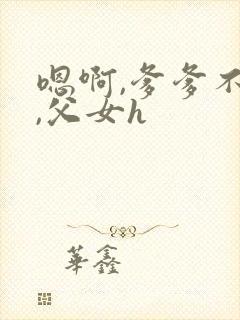 嗯啊,爹爹不
,父女h
華鑫